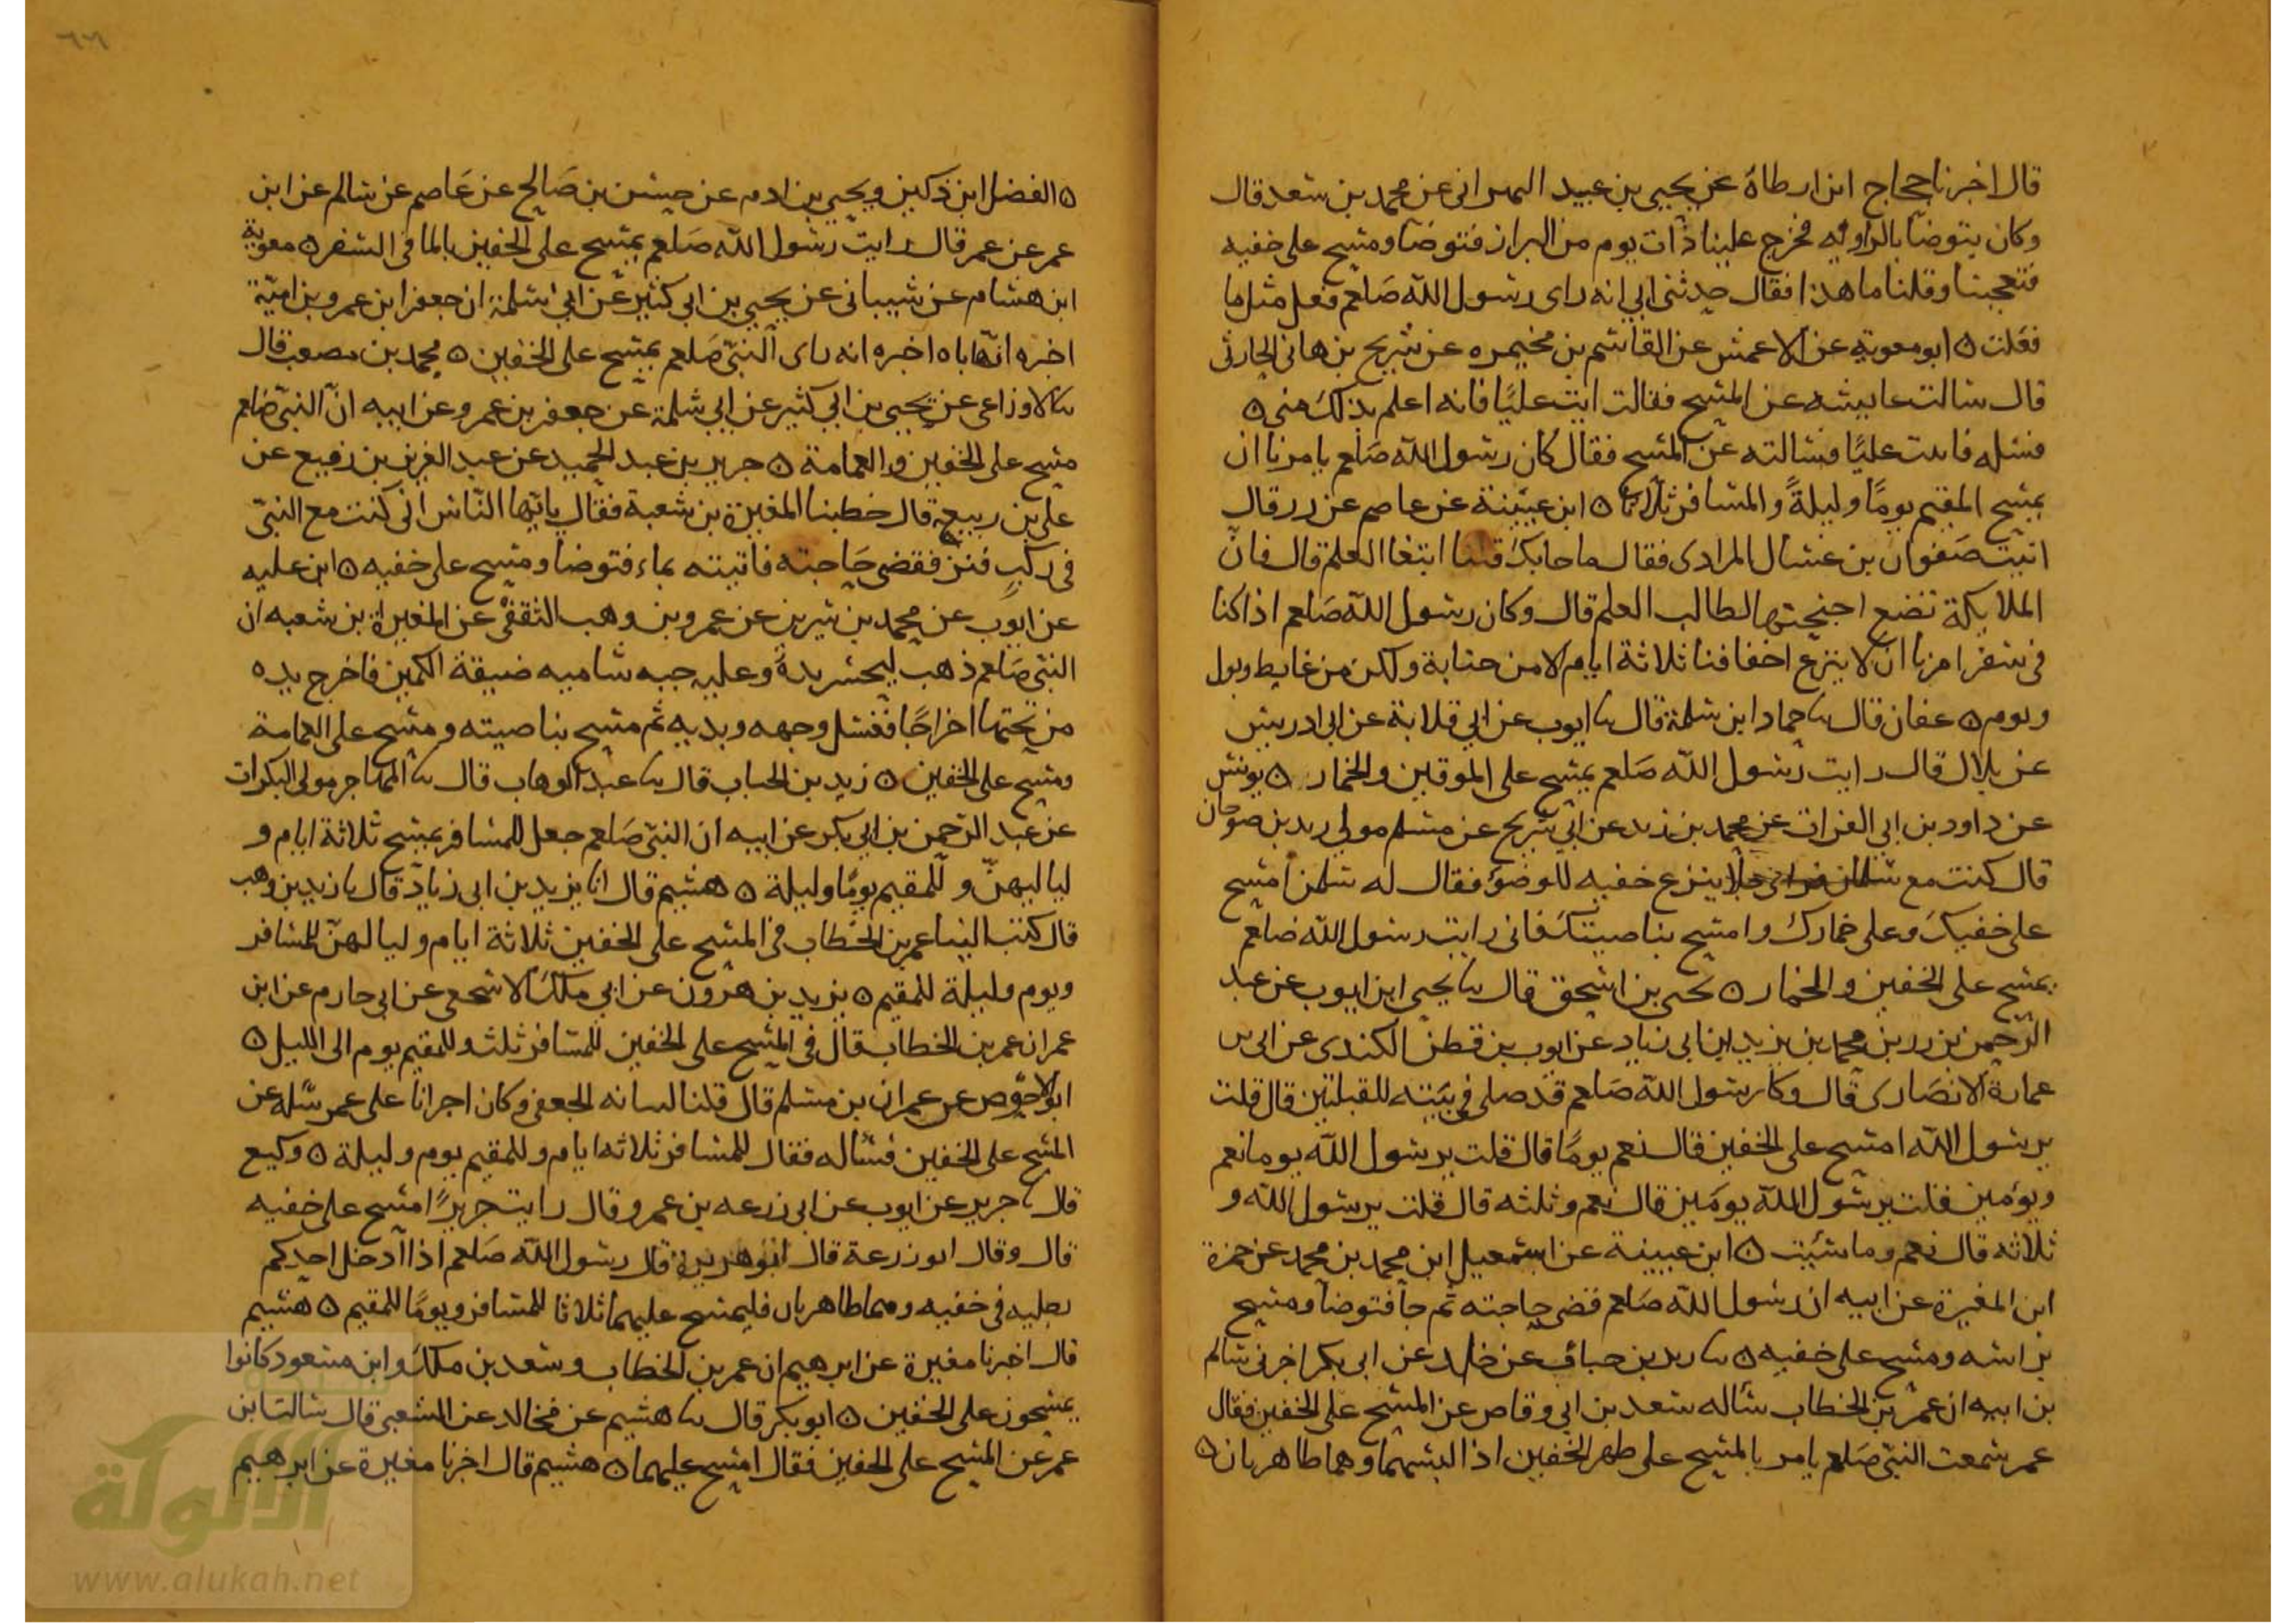 قال اخبرنا حجاج ابن ارطاة عن يحيى بن عبيد البهرانى عن محمد بن سعد قال
وكان يتوضا بالزاويه فخرج علينا ذات يوم من البراز فتوضا ومسح على خفيه
فتعجبنا وقلنا ما هذا فقال حدثنى ابى انه راى رسول الله صلعم فعل مثل ما
فعلت ٥ ابو معوية عن الاعمش عن القاسم بن مخيمره عن شريح بن هانى الحارثى
قال سالت عايشه عن المسح فقالت ايت عليا فانه اعلم بذلك منى ٥
فسله فاتيت عليا فسالته عن المسح فقال كان رسول الله صلعم يامرنا ان
يمسح المقيم يوما وليلة والمسافر ثلاثا ٥ ابن عيينة عن عاصم عن زر قال
اتيت صفوان بن عسال المرادى فقال ما جا بك قلنا ابتغا العلم قال فان
الملايكة تضع اجنحتها لطالب العلم قال وكان رسول الله صلعم اذا كنا
فى سفر امرنا ان لا ينزع اخفافنا ثلاثة ايام الا من جنابة ولكن من غايط وبول
ونوم ٥ عفان قال نا حماد ابن سلمة قال نا ايوب عن ابى قلابة عن ابى ادريس
عن بلال قال رايت رسول الله صلعم يمسح على الموقين والخمار ٥ يونس
عن داود بن ابى الفرات عن محمد بن زيد عن ابى شريح عن مسلم مولى زيد بن صوحان
قال كنت مع سلمان فراى رجلا ينزع خفيه للوضوء فقال له سلمن امسح
على خفيك وعلى خمارك وامسح بناصيتك فانى رايت رسول الله صلعم
يمسح على الخفين والخمار ٥ يحيى بن اسحق قال نا يحيى ابن ايوب عن عبد
الرحمن بن رزين محمد بن يزيد بن ابى زياد عن ايوب بن قطن الكندى عن ابى بن
عمارة الانصارى قال وكان رسول الله صلعم قد صلى فى بيته للقبلتين قال قلت
يرسول الله امسح على الخفين قال نعم يوما قال قلت يرسول الله يوما نعم
ويومين قلت يرسول الله يومين قال نعم وثلثه قال قلت يرسول الله و
ثلاثه قال نعم وما شئت ٥ ابن عيينة عن اسمعيل ابن محمد بن محمد عن حمزة
ابن المغيرة عن ابيه ان رسول الله صلعم قضى حاجته ثم جا فتوضا ومسح
براسه ومسح على خفيه ٥ نا زيد بن حباب عن خلد عن ابى بكر اخبرنى سالم
بن ابيه ان عمر بن الخطاب ساله سعد بن ابى وقاص عن المسح على الخفين فقال
عمر سمعت النبى صلعم يامر بالمسح على ظهر الخفين اذا لبسهما وهما طاهرتان ٥
٦٦
٥ الفضل ابن دكين ويحيى بن ادم عن حسن بن صالح عن عاصم عن سالم عن ابن
عمر عن عمر قال رايت رسول الله صلعم يمسح على الخفين بالما فى السفر ٥ معوية
ابن هشام عن شيبانى عن يحيى بن ابى كثير عن ابى سلمة ان جعفر ابن عمرو بن امية
اخبره ان اباه اخبره انه راى النبى صلعم يمسح على الخفين ٥ محمد بن مصعب قال
نا الاوزاعى عن يحيى بن ابى كثير عن ابى سلمة عن جعفر بن عمرو عن ابيه ان النبى صلعم
مسح على الخفين والعمامة ٥ جرير بن عبد الحميد عن عبد العزيز بن رفيع عن
على بن ربيعة قال خطبنا المغيرة بن شعبة فقال يايها الناس انى كنت مع النبى
فى ركب فنزل فقضى حاجته فاتيته بماء فتوضا ومسح على خفيه ٥ ابن عليه
عن ايوب عن محمد بن سيرين عن عمرو بن وهب الثقفى عن المغيرة بن شعبه ان
النبى صلعم ذهب ليحسر يده وعليه جبه شاميه ضيقة الكمين فاخرج يده
من تحتها اخراجا فغسل وجهه ويديه ثم مسح بناصيته ومسح على العمامة
ومسح على الخفين ٥ زيد بن الحباب قال نا عبد الوهاب قال نا المهاجر مولى البكرات
عن عبد الرحمن بن ابى بكر عن ابيه ان النبى صلعم جعل للمسافر يمسح ثلاثة ايام و
لياليهن وللمقيم يوما وليلة ٥ هشيم قال انا يزيد بن ابى زياد قال نا زيد بن وهب
قال كتب الينا عمر بن الخطاب فى المسح على الخفين ثلاثة ايام وليالهن للمسافر
ويوم وليلة للمقيم ٥ يزيد بن هرون عن ابى ملك الاشجعى عن ابى حازم عن ابن
عمر ان عمر بن الخطاب قال فى المسح على الخفين للمسافر ثلث وللمقيم يوم الى الليل ٥
ابو الاحوص عن عمران بن مسلم قال قلنا لسانه الجعفى وكان اجرانا على عمر سله عن
المسح على الخفين فساله فقال للمسافر ثلاثه ايام وللمقيم يوم وليلة ٥ وكيع
قال نا جرير عن ايوب عن ابى زرعه بن عمرو قال رايت جريرا امسح على خفيه
قال وقال ابو زرعة قال ابو هريرة قال رسول الله صلعم اذا ادخل احدكم
رجليه فى خفيه وهما طاهرتان فليمسح عليهما ثلاثا للمسافر ويوما للمقيم ٥ هشيم
قال اخبرنا مغيرة عن ابرهيم ان عمر بن الخطاب وسعد بن ملك وابن مسعود كانوا
يمسحون على الخفين ٥ ابو بكر قال نا هشيم عن مخالد عن الشعبى قال سالت ابن
عمر عن المسح على الخفين فقال امسح عليهما ٥ هشيم قال اخبرنا مغيرة عن ابرهيم
شبكة
الألوكة
www.alukah.net